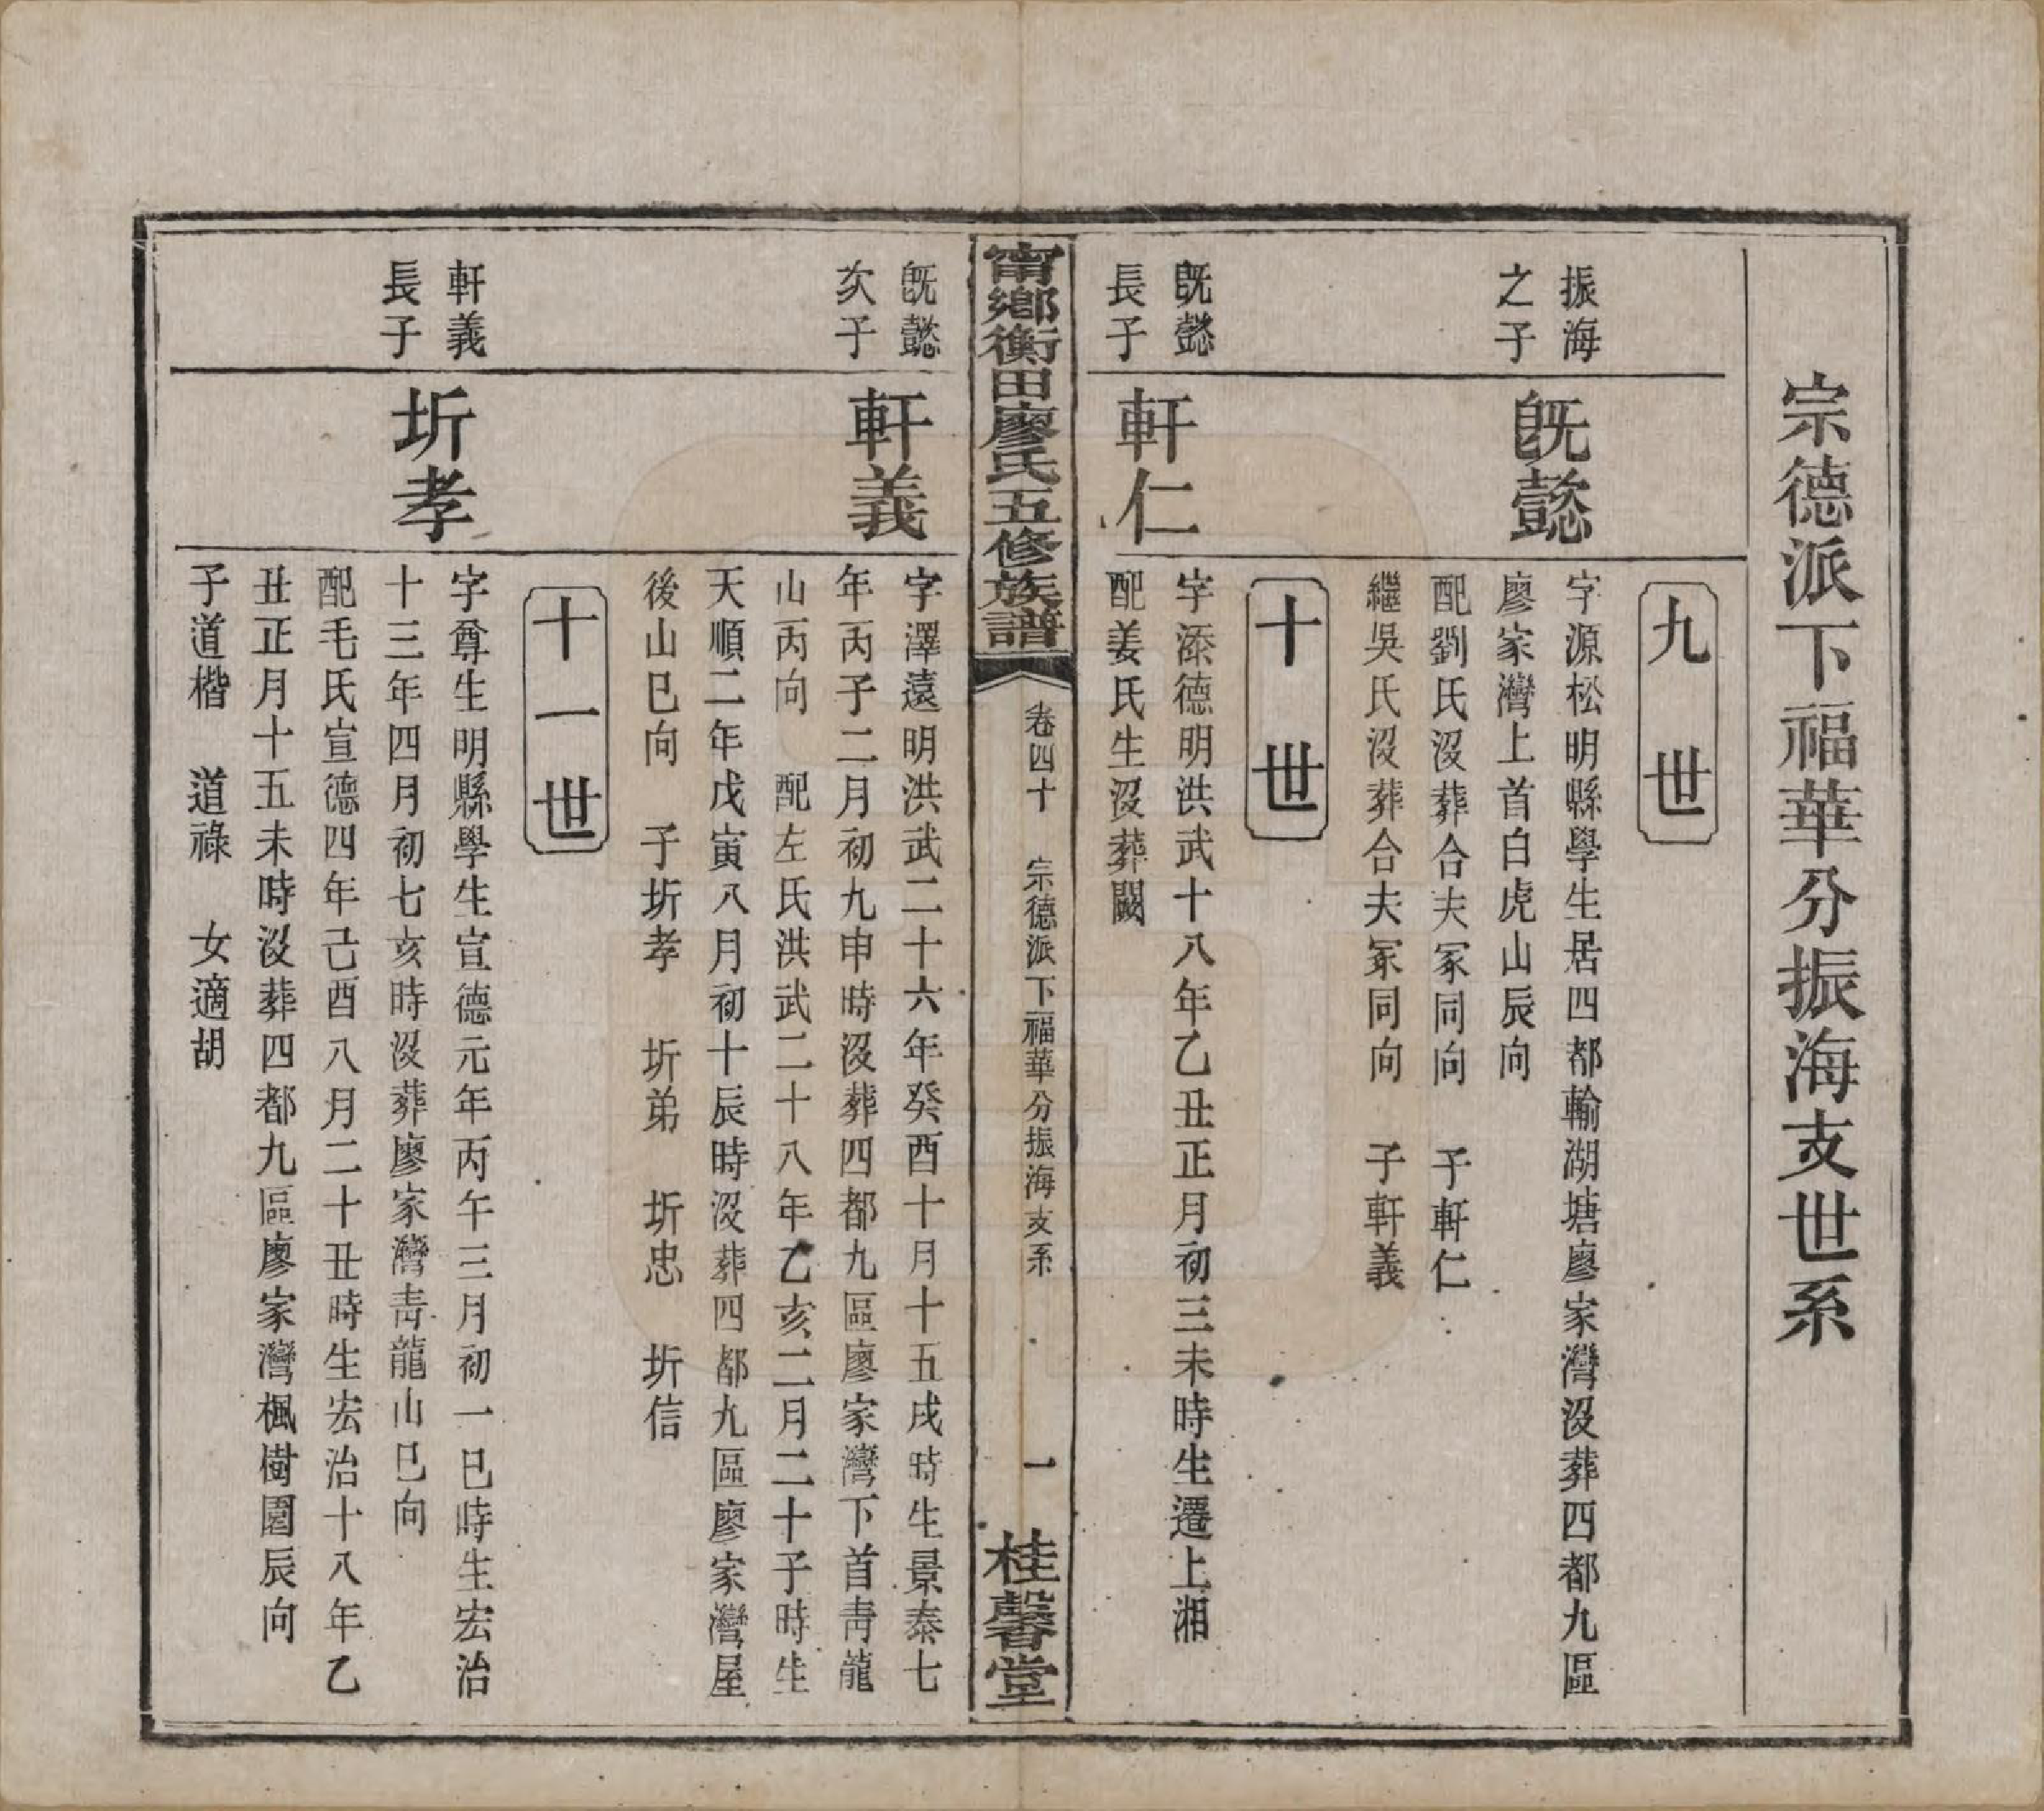 宗德派下福華分振海支世系
九世
振海
之子
旣懿
字源松明縣學生居四都輸湖塘廖家灣沒葬四都九區
廖家灣上首白虎山辰向
配劉氏沒葬合夫冢同向　子軒仁
繼吳氏沒葬合夫冢同向　子軒義
十世
旣懿
長子
軒仁
字添德明洪武十八年乙丑正月初三未時生遷上湘
配姜氏生沒葬闕
甯鄉衡田廖氏五修族譜
卷四十　宗德派下福華分振海支系　一
桂馨堂
旣懿
次子
軒義
字澤遠明洪武二十六年癸酉十月十五戌時生景泰七
年丙子二月初九申時沒葬四都九區廖家灣下首靑龍
山丙向　配左氏洪武二十八年乙亥二月二十子時生
天順二年戊寅八月初十辰時沒葬四都九區廖家灣屋
後山巳向　子圻孝　圻弟　圻忠　圻信
十一世
軒義
長子
圻孝
字尊生明縣學生宣德元年丙午三月初一巳時生宏治
十三年四月初七亥時沒葬廖家灣靑龍山巳向
配毛氏宣德四年己酉八月二十丑時生宏治十八年乙
丑正月十五未時沒葬四都九區廖家灣楓樹園辰向
子道楷　道祿　女適胡